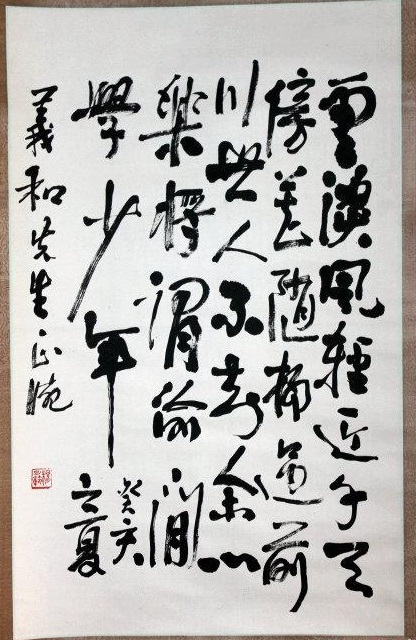 雲淡風輕近午天
傍花隨柳過前
川世人不余心
樂將謂偷閒
學少年
癸亥
立夏
義和先生正腕